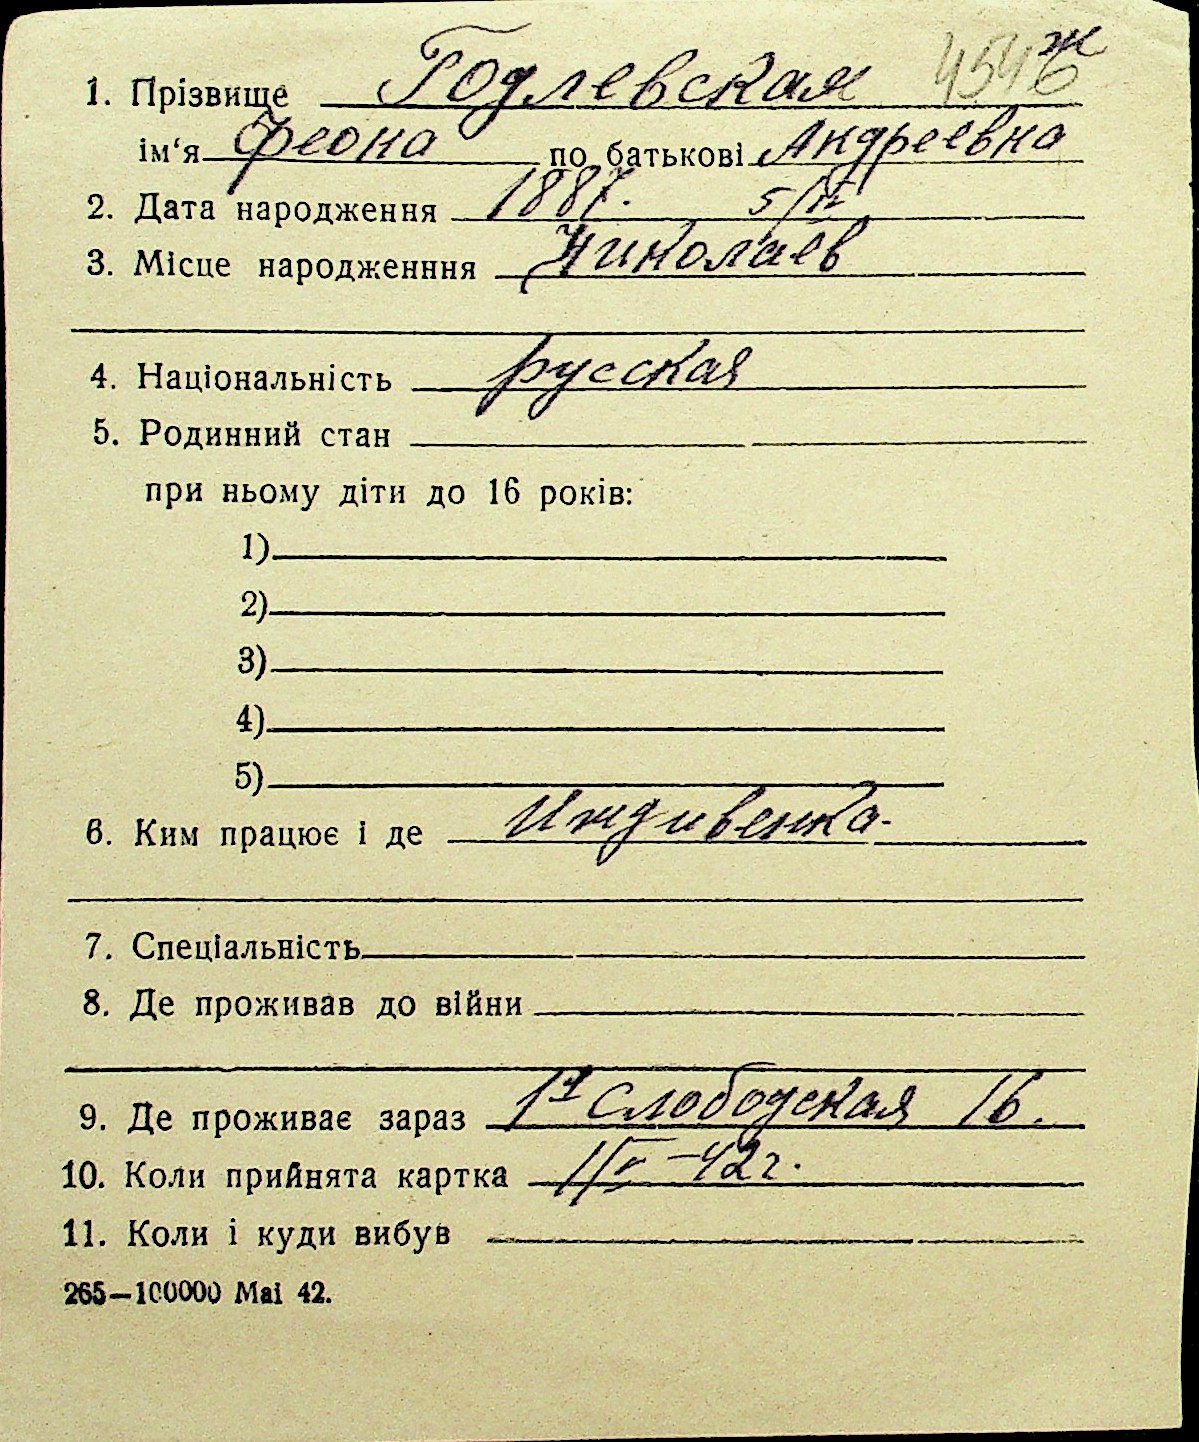 1. Прізвище Годлевская 4546 ж
ім'я Феона по батькові Андреевна
2. Дата народження 1887. 5/
3. Місце народженння Николаев
4. Національність русская
5. Родинний стан
при ньому діти до 16 років:
1)
2)
3)
4)
5)
6. Ким працює і де Иждивенка.
7. Спеціальність
8. Де проживав до війни
9. Де проживає зараз 1я Слободская 16.
10. Коли прийнята картка -42 г.
11. Коли і куди вибув
265—100000 Маі 42.